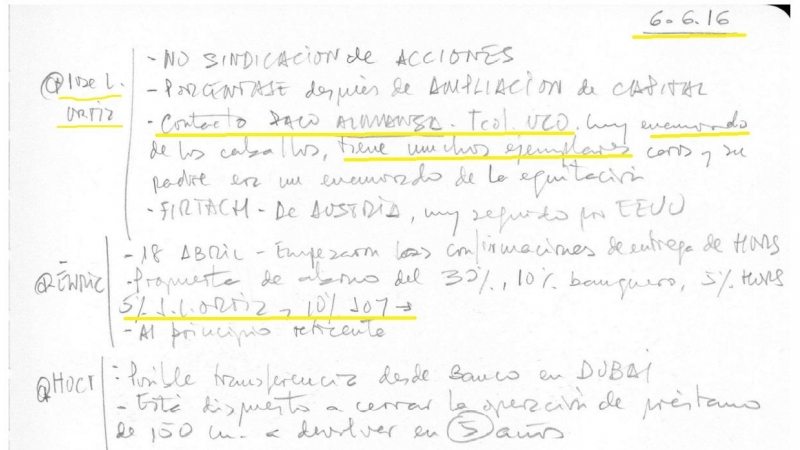 6.6.16
@ Jose L. ORTIZ
- NO SINDICACION de ACCIONES
- PORCENTAJE después de AMPLIACION de CAPITAL
- Contacto PACO ALMANSA - Tcol. UCO. Muy enamorado
de los caballos, tiene muchos ejemplares caros y su
padre era un enamorado de la equitación
- FIRTACH - De AUSTRIA, muy seguido por EEUU
- 18 ABRIL - Empezaron las confirmaciones de entrega de
- Propuesta de abono del 30%, 10% banquero, 5%
5% J.L. ORTIZ, 10%
- Al principio reticente
- Posible transferencia desde Banco en DUBAI
- Está dispuesto a cerrar la operación de préstamo
de 150 m. a devolver en 5 años